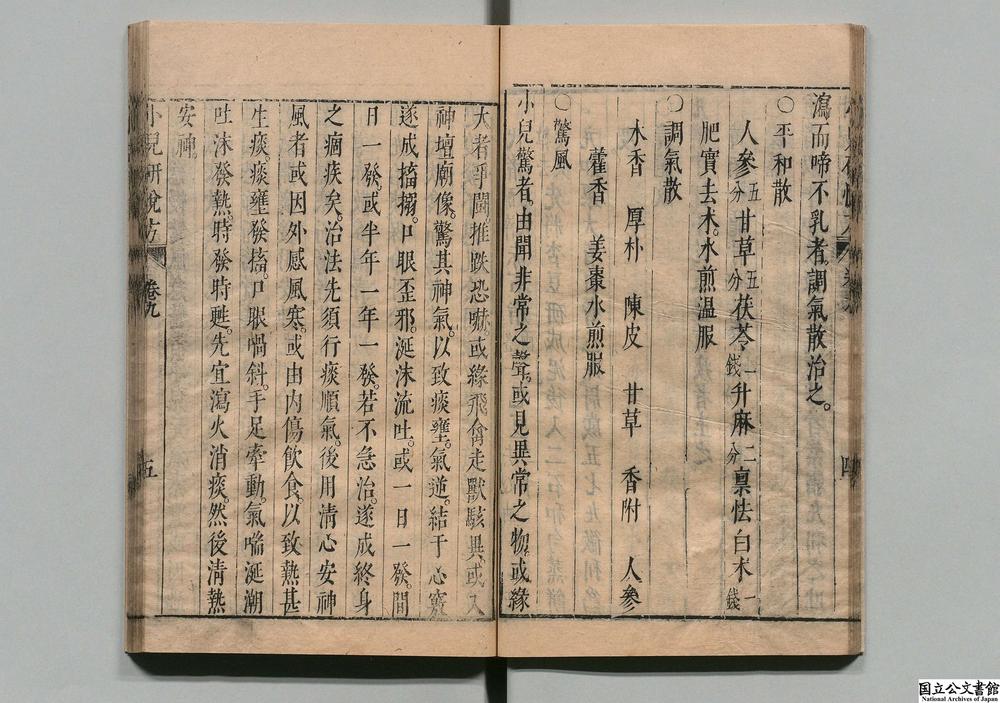 瀉而啼不乳者調氣散治之。
○平和散
人參五分甘草五分茯苓一錢升麻二分稟怯白朮一錢
肥實去朮。水煎温服
○調氣散
木香 厚朴 陳皮 甘草 香附 人參
藿香 姜棗水煎服
○驚風
小兒驚者。由聞非常之聲。或見異常之物。或緣
大者爭鬪推跌恐嚇或緣飛禽走獸駭異。或入
神壇廟像。驚其神氣。以致痰壅。氣逆。結于心竅
遂成搐搦。口眼歪邪。涎沫流吐。或一日一發。間
日一發。或半年一年一發。若不急治。遂成終身
之痼疾矣。治法先須行痰順氣。後用清心安神
風者或因外感風寒。或由内傷飲食。以致熱甚
生痰。痰壅發搐。口眼喎斜。手足牽動。氣喘涎潮
吐沫發熱。時發時甦。先宜瀉火消痰。然後清熱
安神。
小兒研悅方 卷九 五
国立公文書館
National Archives of Japan